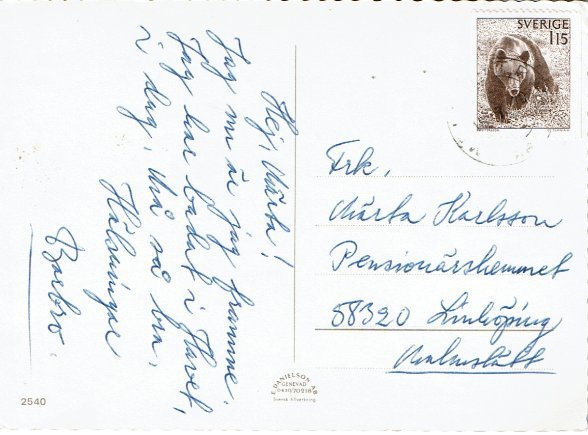 Hej, Märta!
Jag nu är jag framme.
Jag har badat i Havet,
i dag, Må så bra,
Hälsningar
Barbro.
SVERIGE
1.15
Frk,
Märta Karlsson
Pensionärshemmet
58320 Linköping
Malmslätt
E. DANIELSON AB
GENEVAD
0430/70218
Svensk tillverkning
2540